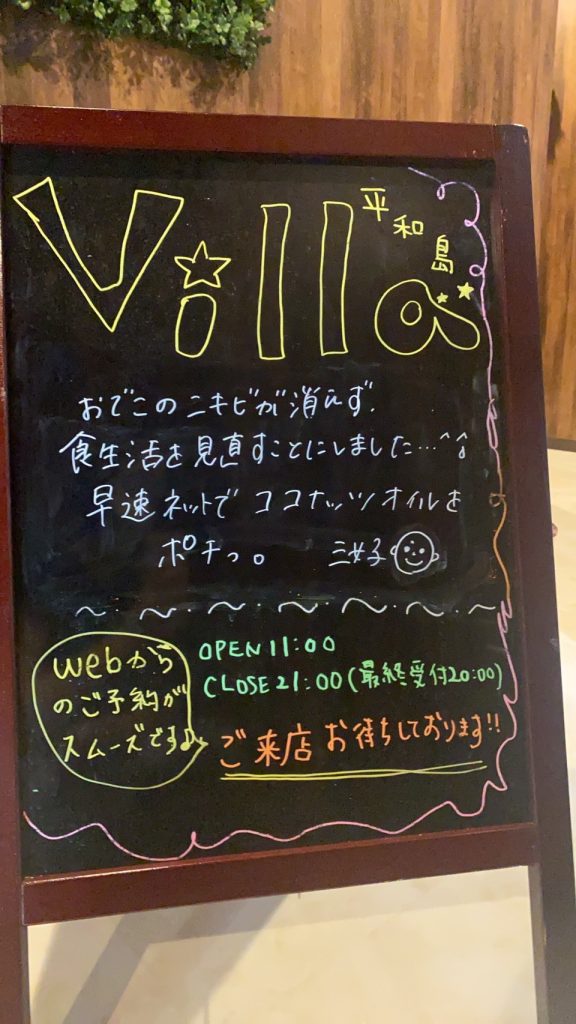 Villa
平和島
おでこのニキビが消えず、
食生活を見直すことにしました…^^;
早速ネットでココナッツオイルを
ポチっ。 三好
〜・〜・〜・〜・〜・〜・〜
webから
のご予約が
スムーズです♪
OPEN 11:00
CLOSE 21:00(最終受付20:00)
ご来店お待ちしております!!